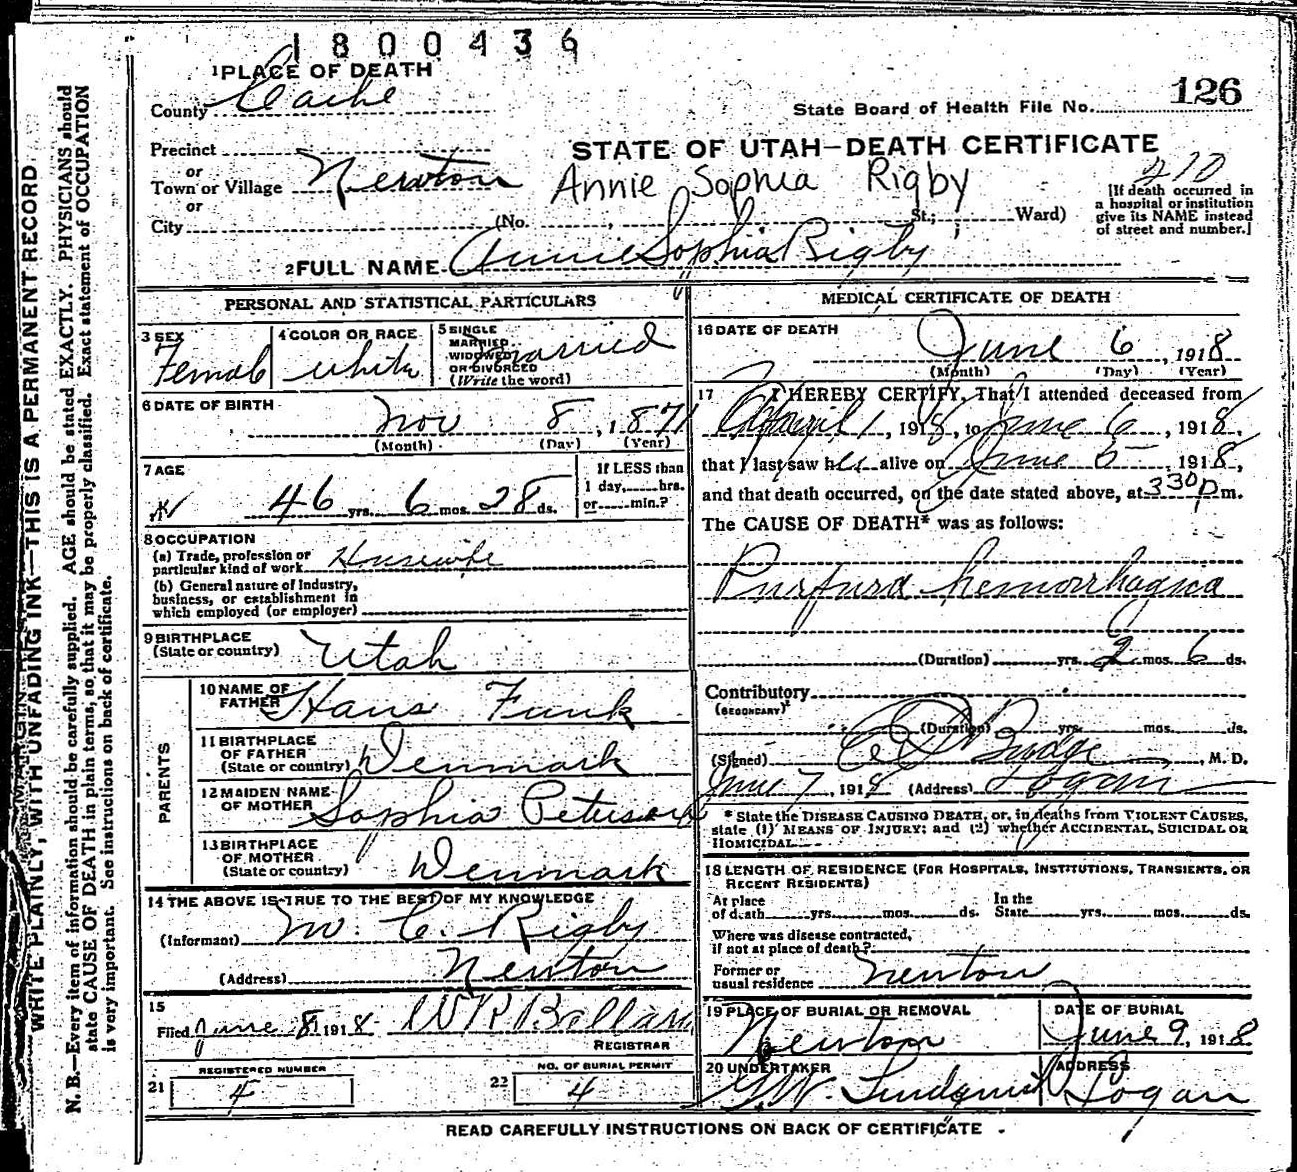 1800436
1 PLACE OF DEATH
County Cache
State Board of Health File No. 126
Precinct
or
Town or Village Newton
or
City (No. , St.; Ward)
STATE OF UTAH—DEATH CERTIFICATE
410
Annie Sophia Rigby
[If death occurred in
a hospital or institution
give its NAME instead
of street and number.]
2 FULL NAME Annie Sophia Rigby
PERSONAL AND STATISTICAL PARTICULARS
3 SEX Female
4 COLOR OR RACE white
5 SINGLE
MARRIED
WIDOWED
OR DIVORCED
(Write the word) married
6 DATE OF BIRTH
Nov 8, 1871
(Month) (Day) (Year)
7 AGE
46 yrs. 6 mos. 28 ds.
If LESS than
1 day, hrs.
or min.?
8 OCCUPATION
(a) Trade, profession or
particular kind of work Housewife
(b) General nature of Industry,
business, or establishment in
which employed (or employer)
9 BIRTHPLACE
(State or country) Utah
PARENTS
10 NAME OF
FATHER Hans Funk
11 BIRTHPLACE
OF FATHER
(State or country) Denmark
12 MAIDEN NAME
OF MOTHER Sophia Peterson
13 BIRTHPLACE
OF MOTHER
(State or country) Denmark
14 THE ABOVE IS TRUE TO THE BEST OF MY KNOWLEDGE
(Informant) M. C. Rigby
(Address) Newton
15
Filed June 8, 1918 W R Ballard
REGISTRAR
REGISTERED NUMBER
21 4
NO. OF BURIAL PERMIT
22 4
MEDICAL CERTIFICATE OF DEATH
16 DATE OF DEATH
June 6, 1918
(Month) (Day) (Year)
17 I HEREBY CERTIFY, That I attended deceased from
April 1, 1918, to June 6, 1918,
that I last saw her alive on June 5, 1918,
and that death occurred, on the date stated above, at 330 p m.
The CAUSE OF DEATH* was as follows:
Purpura hemorrhagica
(Duration) yrs. 2 mos. 6 ds.
Contributory
(SECONDARY)
(Duration) yrs. mos. ds.
(Signed) Budge, M. D.
June 7, 1918 (Address) Logan
* State the DISEASE CAUSING DEATH, or, in deaths from VIOLENT CAUSES,
state (1) MEANS OF INJURY; and (2) whether ACCIDENTAL, SUICIDAL OR
HOMICIDAL.
18 LENGTH OF RESIDENCE (FOR HOSPITALS, INSTITUTIONS, TRANSIENTS, OR
RECENT RESIDENTS)
At place
of death yrs. mos. ds.
In the
State yrs. mos. ds.
Where was disease contracted,
if not at place of death?
Former or
usual residence Newton
19 PLACE OF BURIAL OR REMOVAL
Newton
DATE OF BURIAL
June 9, 1918
20 UNDERTAKER
G.W. Lindquist
ADDRESS
Logan
READ CAREFULLY INSTRUCTIONS ON BACK OF CERTIFICATE
WRITE PLAINLY, WITH UNFADING INK—THIS IS A PERMANENT RECORD
N. B.—Every item of information should be carefully supplied. AGE should be stated EXACTLY. PHYSICIANS should
state CAUSE OF DEATH in plain terms, so that it may be properly classified. Exact statement of OCCUPATION
is very important. See instructions on back of certificate.